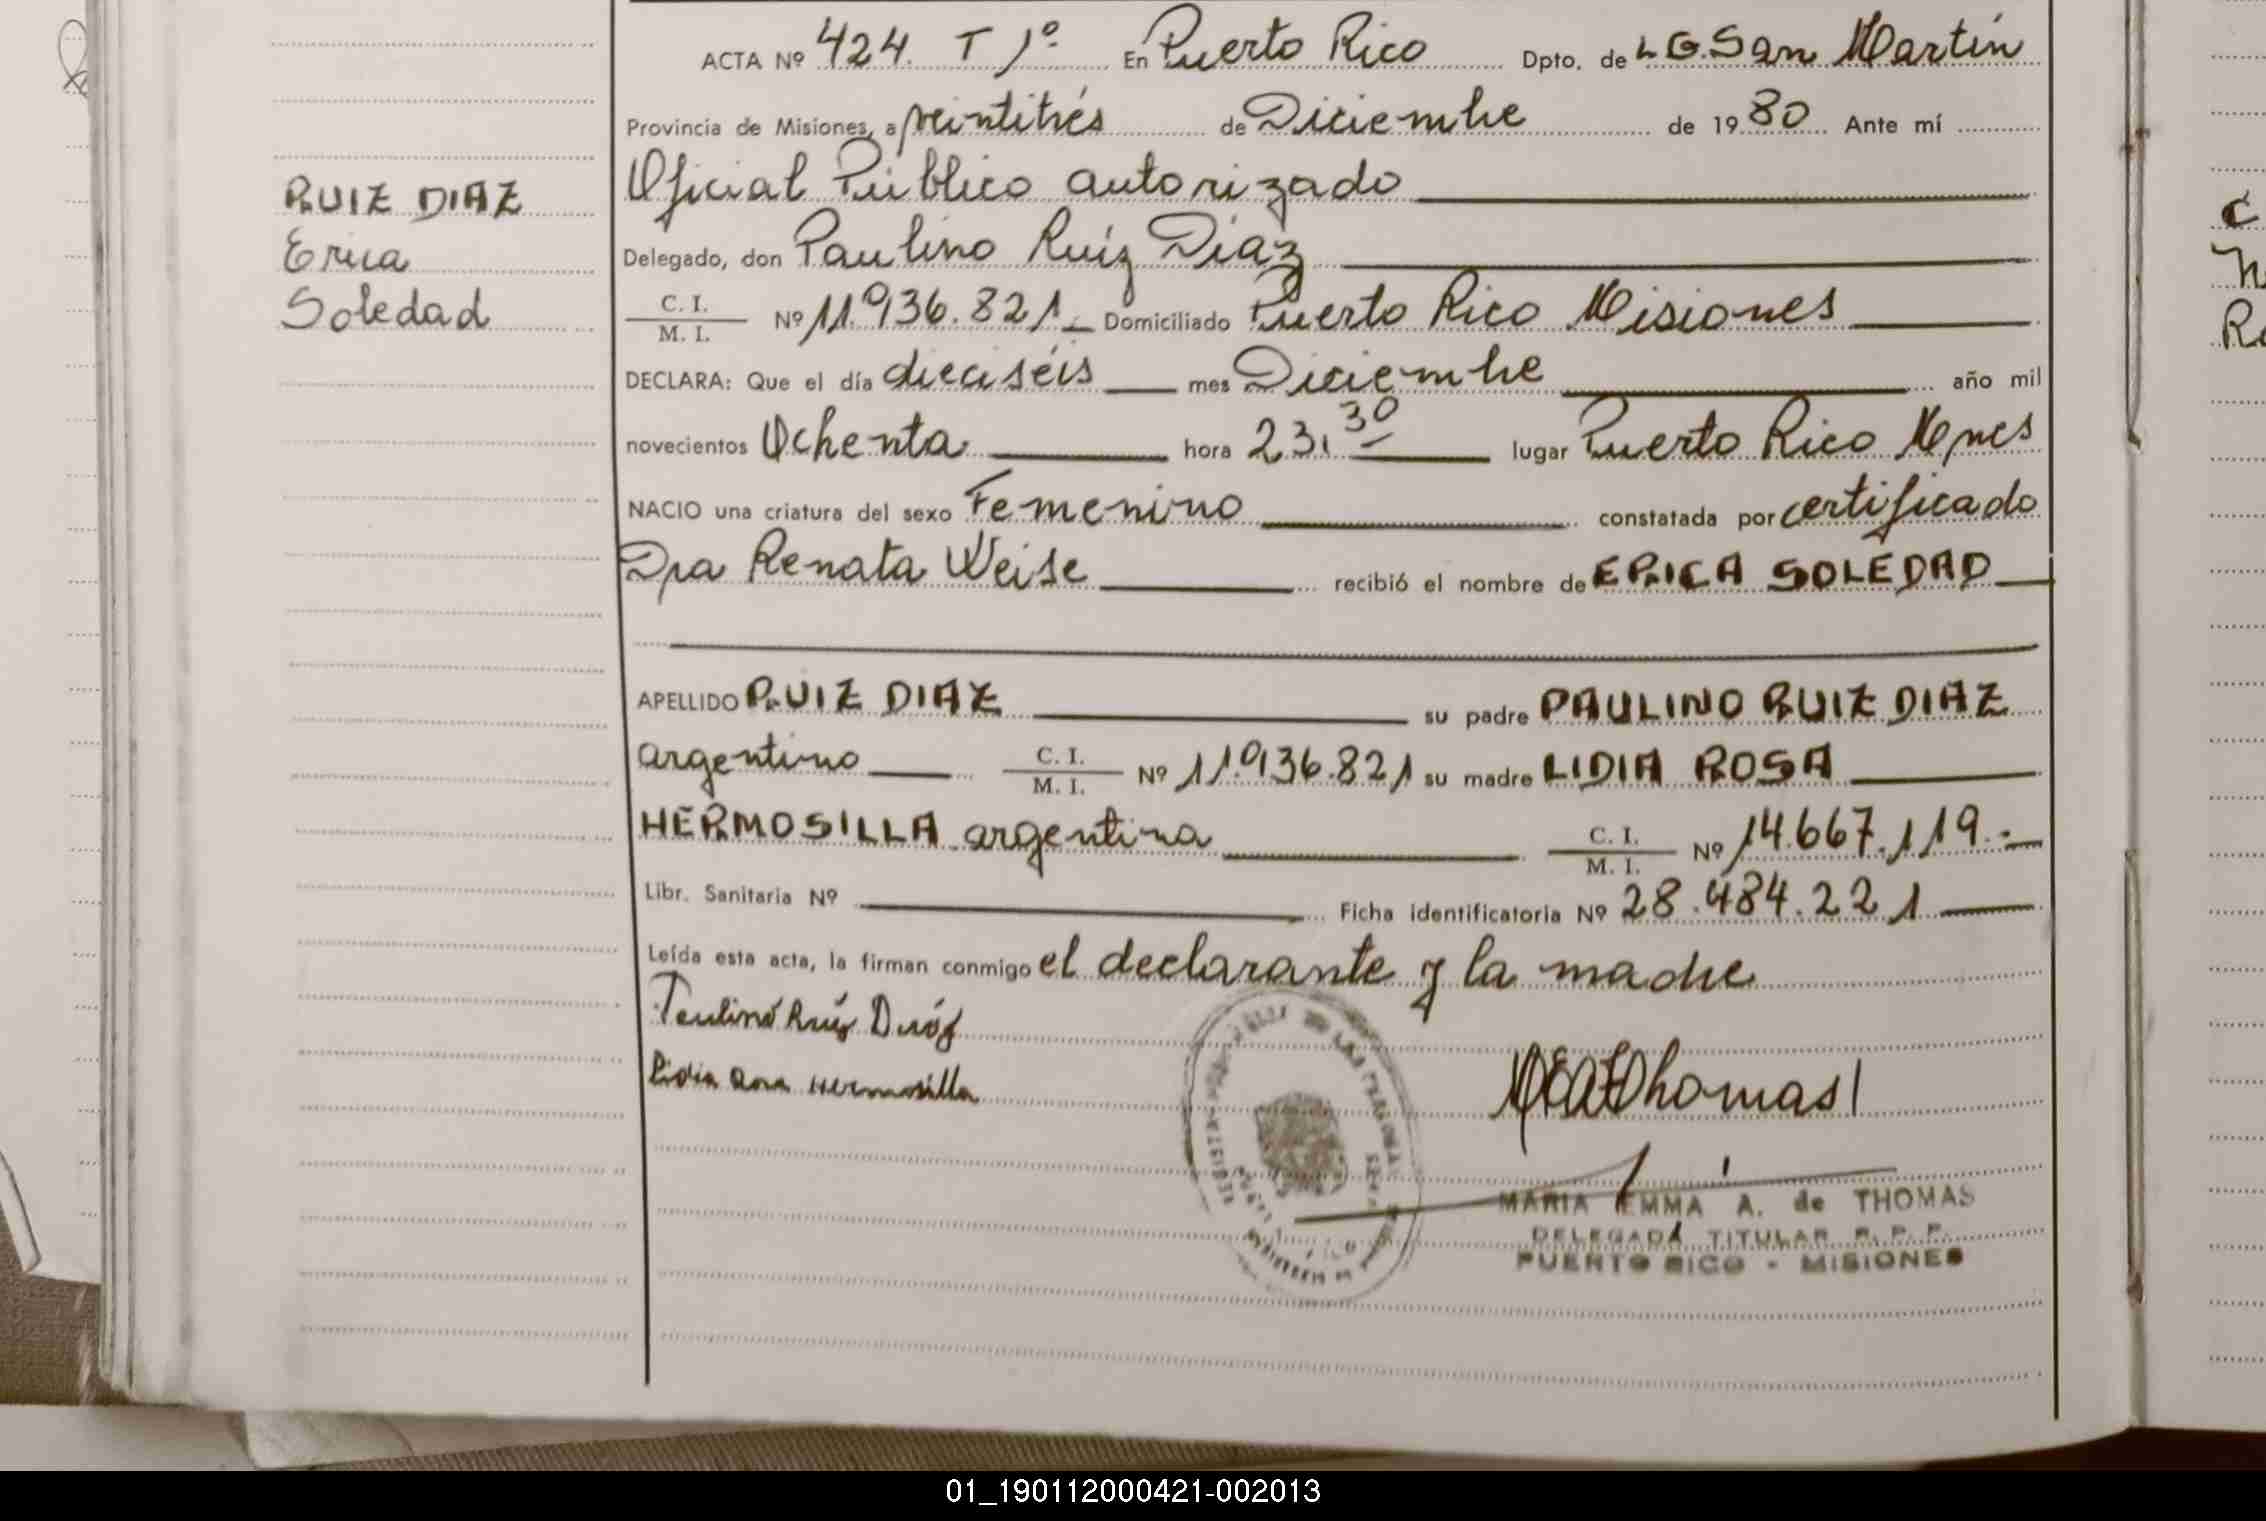 ACTA Nº 424. T 1º En Puerto Rico Dpto. de L G. San Martín
Provincia de Misiones, a veintitrés de Diciembre de 1980 Ante mí
Oficial Público autorizado
RUIZ DIAZ
Erica
Soledad
Delegado, don Paulino Ruíz Díaz
C. I.
M. I. Nº 11.936.821 Domiciliado Puerto Rico Misiones
DECLARA: Que el día dieciséis mes Diciembre año mil
novecientos Ochenta hora 23,30 lugar Puerto Rico Mnes
NACIO una criatura del sexo Femenino constatada por certificado
Dra Renata Weise recibió el nombre de ERICA SOLEDAD
APELLIDO RUIZ DIAZ su padre PAULINO RUIZ DIAZ
argentino C. I.
M. I. Nº 11.936.821 su madre LIDIA ROSA
HERMOSILLA argentina C. I.
M. I. Nº 14.667.119.-
Libr. Sanitaria Nº Ficha identificatoria Nº 28.484.221
Leída esta acta, la firman conmigo el declarante y la madre
Paulino Ruíz Diáz
Lidia Rosa Hermosilla
Thomas
MARIA EMMA A. de THOMAS
DELEGADA TITULAR R. P. P.
PUERTO RICO - MISIONES
01_190112000421-002013